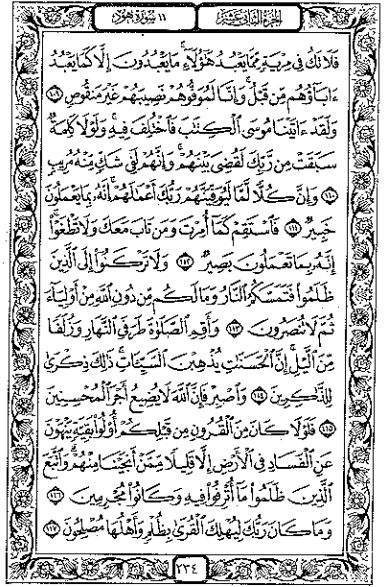 الجزء الثاني عشر
١١ سورة هود
فَلَا تَكُ فِي مِرْيَةٍ مِّمَّا يَعْبُدُ هَٰٓؤُلَآءِ مَا يَعْبُدُونَ إِلَّا كَمَا يَعْبُدُ
ءَابَآؤُهُم مِّن قَبْلُ وَإِنَّا لَمُوَفُّوهُمْ نَصِيبَهُمْ غَيْرَ مَنقُوصٍ ١٠٩
وَلَقَدْ ءَاتَيْنَا مُوسَى ٱلْكِتَٰبَ فَٱخْتُلِفَ فِيهِ وَلَوْلَا كَلِمَةٌ
سَبَقَتْ مِن رَّبِّكَ لَقُضِىَ بَيْنَهُمْ وَإِنَّهُمْ لَفِى شَكٍّ مِّنْهُ مُرِيبٍ
١١٠ وَإِنَّ كُلًّا لَّمَّا لَيُوَفِّيَنَّهُمْ رَبُّكَ أَعْمَٰلَهُمْ إِنَّهُۥ بِمَا يَعْمَلُونَ
خَبِيرٌ ١١١ فَٱسْتَقِمْ كَمَآ أُمِرْتَ وَمَن تَابَ مَعَكَ وَلَا تَطْغَوْا۟
إِنَّهُۥ بِمَا تَعْمَلُونَ بَصِيرٌ ١١٢ وَلَا تَرْكَنُوٓا۟ إِلَى ٱلَّذِينَ
ظَلَمُوا۟ فَتَمَسَّكُمُ ٱلنَّارُ وَمَا لَكُم مِّن دُونِ ٱللَّهِ مِنْ أَوْلِيَآءَ
ثُمَّ لَا تُنصَرُونَ ١١٣ وَأَقِمِ ٱلصَّلَوٰةَ طَرَفَىِ ٱلنَّهَارِ وَزُلَفًا
مِّنَ ٱلَّيْلِ إِنَّ ٱلْحَسَنَٰتِ يُذْهِبْنَ ٱلسَّيِّـَٔاتِ ذَٰلِكَ ذِكْرَىٰ
لِلذَّٰكِرِينَ ١١٤ وَٱصْبِرْ فَإِنَّ ٱللَّهَ لَا يُضِيعُ أَجْرَ ٱلْمُحْسِنِينَ
١١٥ فَلَوْلَا كَانَ مِنَ ٱلْقُرُونِ مِن قَبْلِكُمْ أُو۟لُوا۟ بَقِيَّةٍ يَنْهَوْنَ
عَنِ ٱلْفَسَادِ فِى ٱلْأَرْضِ إِلَّا قَلِيلًا مِّمَّنْ أَنجَيْنَا مِنْهُمْ وَٱتَّبَعَ
ٱلَّذِينَ ظَلَمُوا۟ مَآ أُتْرِفُوا۟ فِيهِ وَكَانُوا۟ مُجْرِمِينَ ١١٦
وَمَا كَانَ رَبُّكَ لِيُهْلِكَ ٱلْقُرَىٰ بِظُلْمٍ وَأَهْلُهَا مُصْلِحُونَ ١١٧
٢٣٤